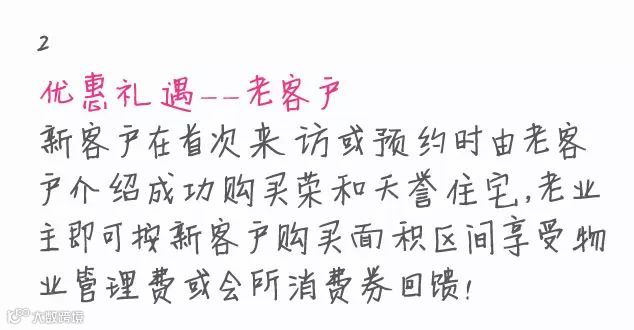 2
优惠礼遇--老客户
新客户在首次来访或预约时由老客
户介绍成功购买荣和天誉住宅,老业
主即可按新客户购买面积区间享受物
业管理费或会所消费券回馈!
大数跨境